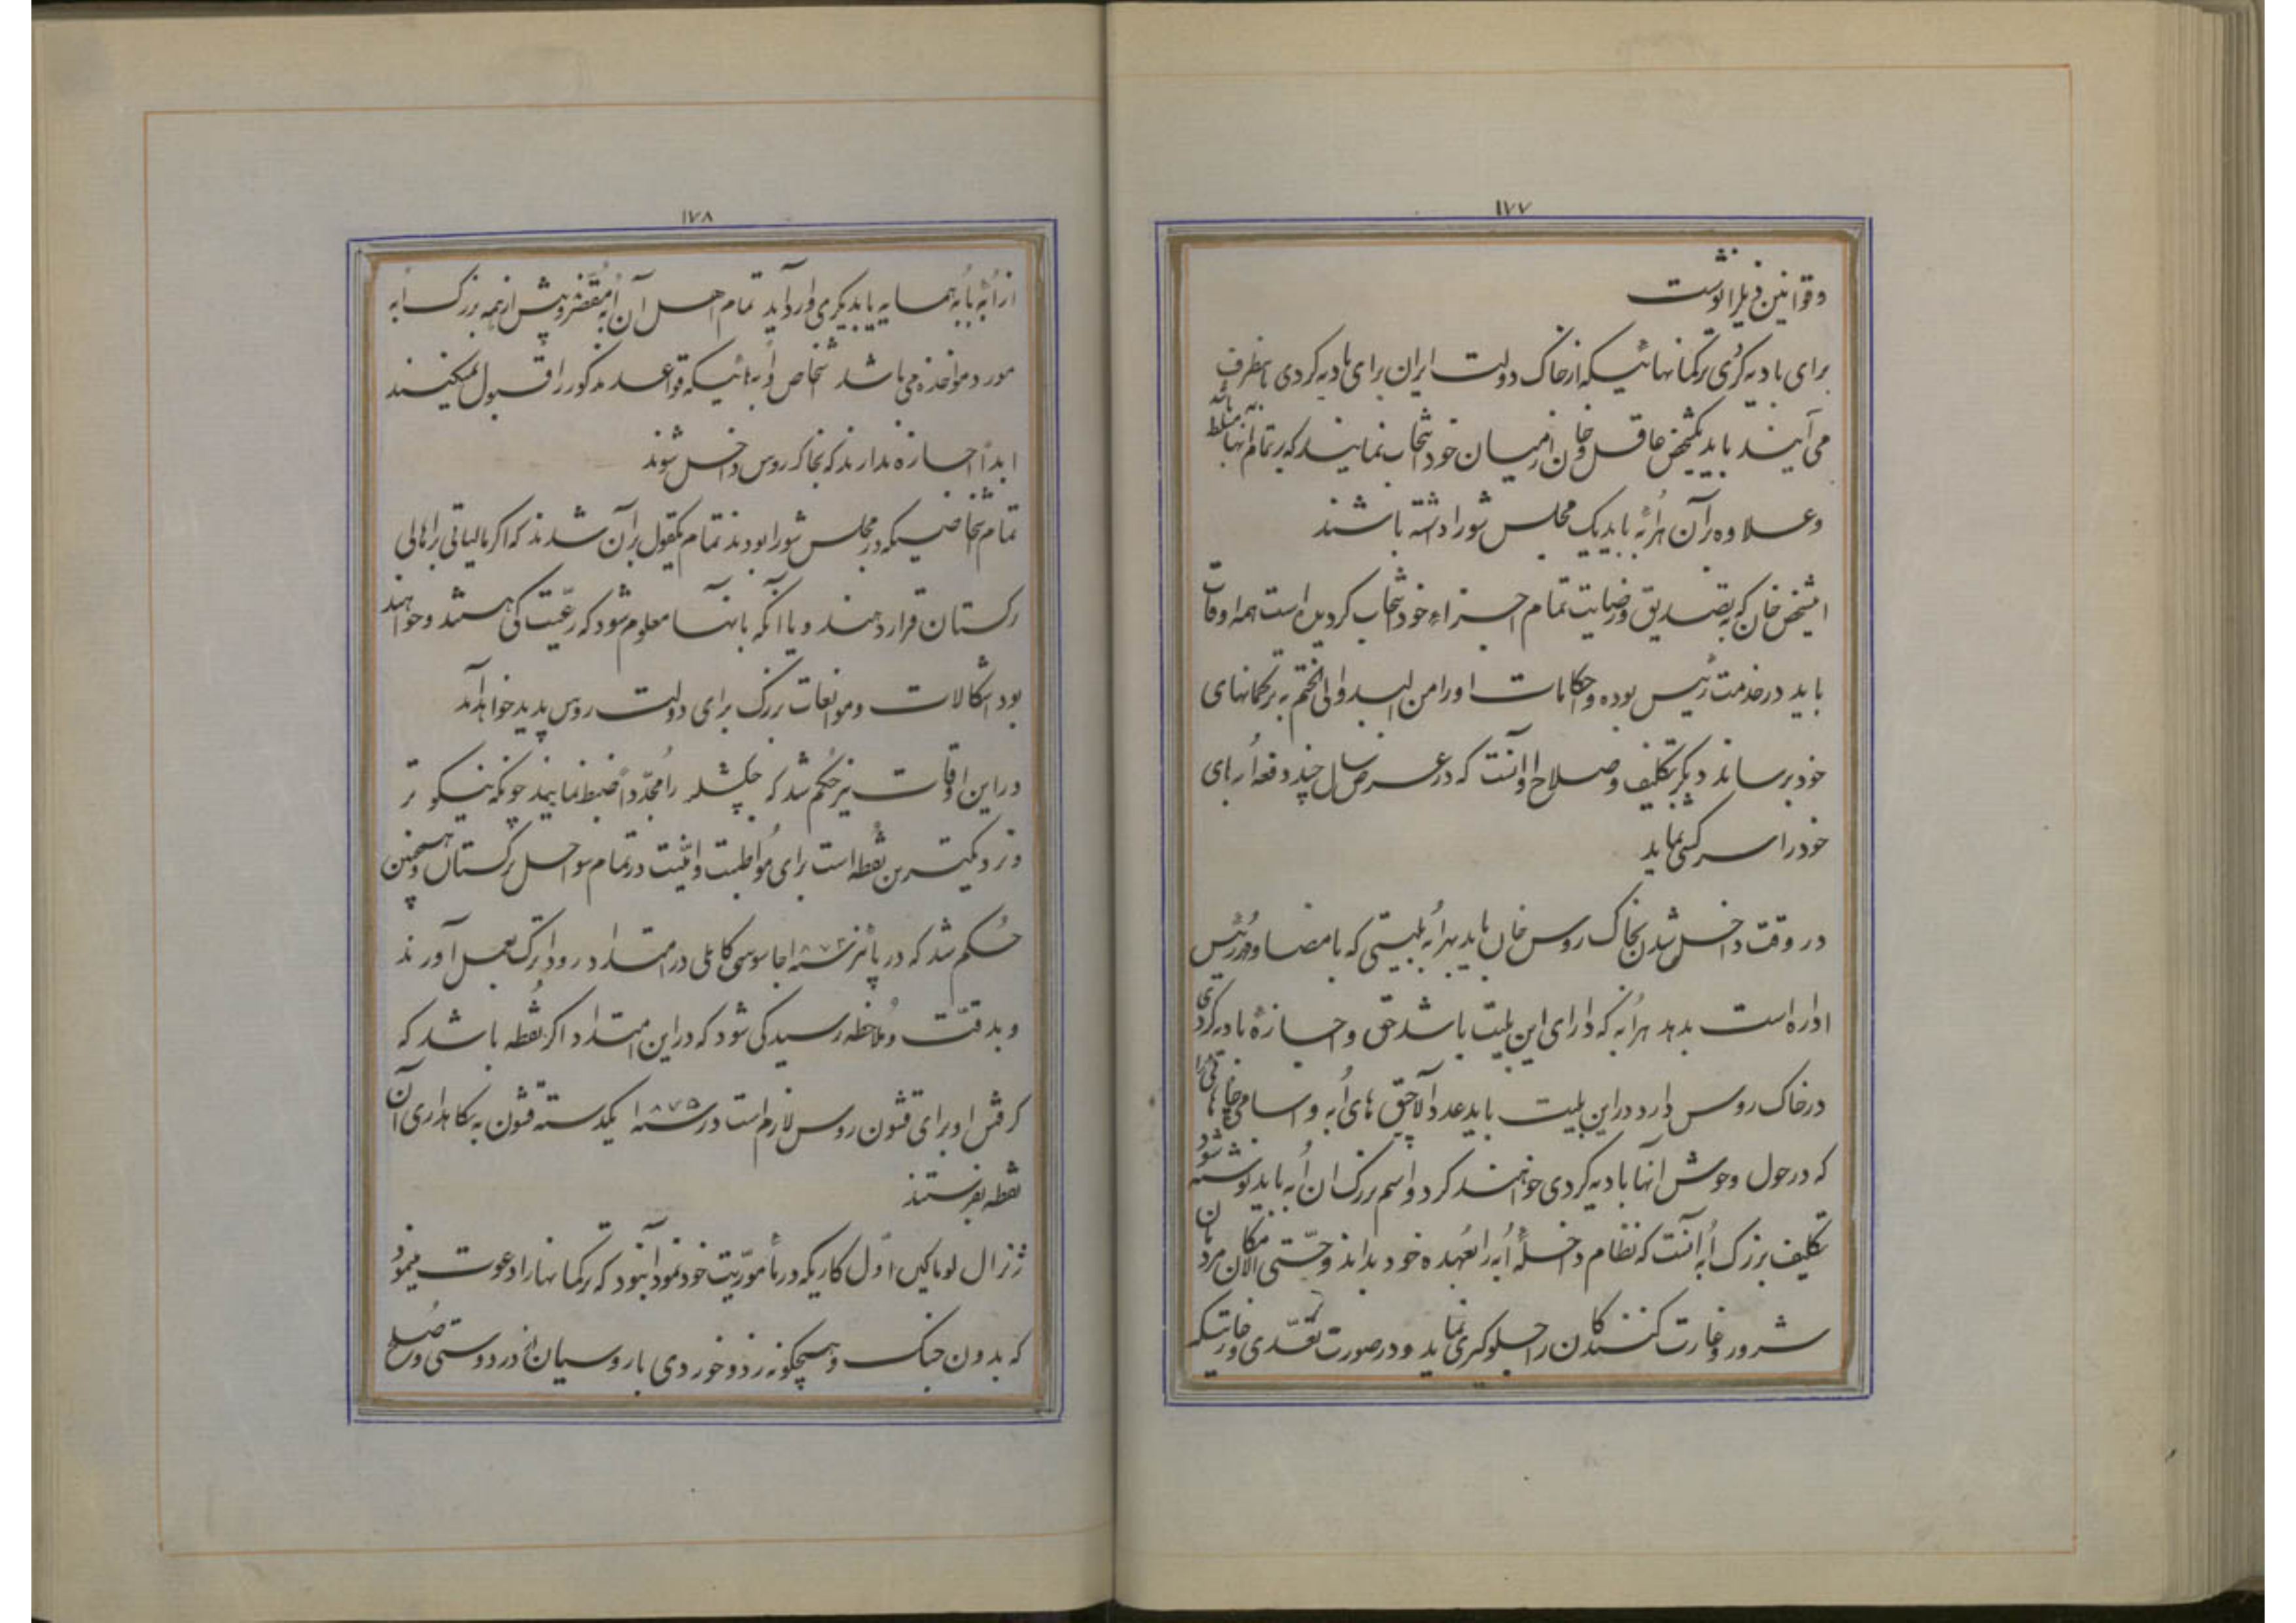 ۱۷۷
و قوانین ذیل را نوشت
برای بادیه کردی ترکمانهائیکه از خاک دولت ایران برای بادیه کردی باینطرف
می آیند باید یکشخص عاقل و خان از میان خود انتخاب نمایند که بر تمام آنها مسلط باشد
و علاوه بر آن هر اُبه باید یک مجلس شورا داشته باشند
این شخص خان که بتصدیق و رضایت تمام اجزاء خود انتخاب کردیده است همه اوقات
باید در خدمت رئیس بوده و احکامات او را من البدو الی الختم به ترکمانهای
خود برساند دیگر تکلیف و صلاح او آنست که در عرض سال چند دفعه اُبه های
خود را سرکشی نماید
در وقت داخل شدن بخاک روس خان باید بهر اُبه بلیتی که بامضا و مُهر رئیس
اداره است بدهد هر اُبه که دارای این بلیت باشد حق و اجازهٔ بادیه کردی
در خاک روس دارد در این بلیت باید عدد آلاچق های اُبه و اسامی
که در حول و حوش انها بادیه کردی خواهند کرد و اسم بزرک ان اُبه باید نوشته شود
تکلیف بزرک اُبه آنست که نظام داخلهٔ اُبه را بعُهده خود بداند و حتّی الامکان مردمان
شرور و غارت کنندکان را جلوکیری نماید و در صورت تعّدی و غارتیکه
۱۷۸
از اُبه بابه همسایه یا بدیکری وارد آید تمام اهل آن اُبه مُقصّر و پیش از همه بزرک اُبه
مورد مواخذه می باشد اشخاص و اُبه هائیکه قواعد مذکور را قبول نمیکنند
ابداً اجازه ندارند که بخاک روس داخل شوند
تمام اشخاصیکه در مجلس شورا بودند تمام یکقول بر آن شدند که اکر مالیاتی بر اهالی
ترکستان قرار دهند و یا آنکه بانها معلوم شود که رعّیت کی هستند و خواهند
بود اشکالات و موانعات بزرک برای دولت روس پدید خواهد آمد
در این اوقات نیز حُکم شد که چکشلر را مُجدّداً ضبط نمایند چونکه نیکو تر
و نزدیکترین نُقطه است برای مُواظبت و امنّیت در تمام سواحل ترکستان و همچنین
حُکم شد که در پائیز سنه ۱۸۷۴ جاسوسی کاملی در امتداد رود اترک بعمل آورند
و بدقّت و مُلاحظه رسیدکی شود که در این امتداد اکر نُقطه باشد که
کرفتن او برای قشون روس لازم است در سنه ۱۸۷۵ یکدسته قشون به نکاهداری آن
نقطه بفرستند
ژنرال لوماکین اوّل کاریکه در مأموریّت خود نمود آنبود که ترکمانها را دعوت مینمود
که بدون جنک و هیچکونه زد و خوردی با روسیان در دوستی و صُلح